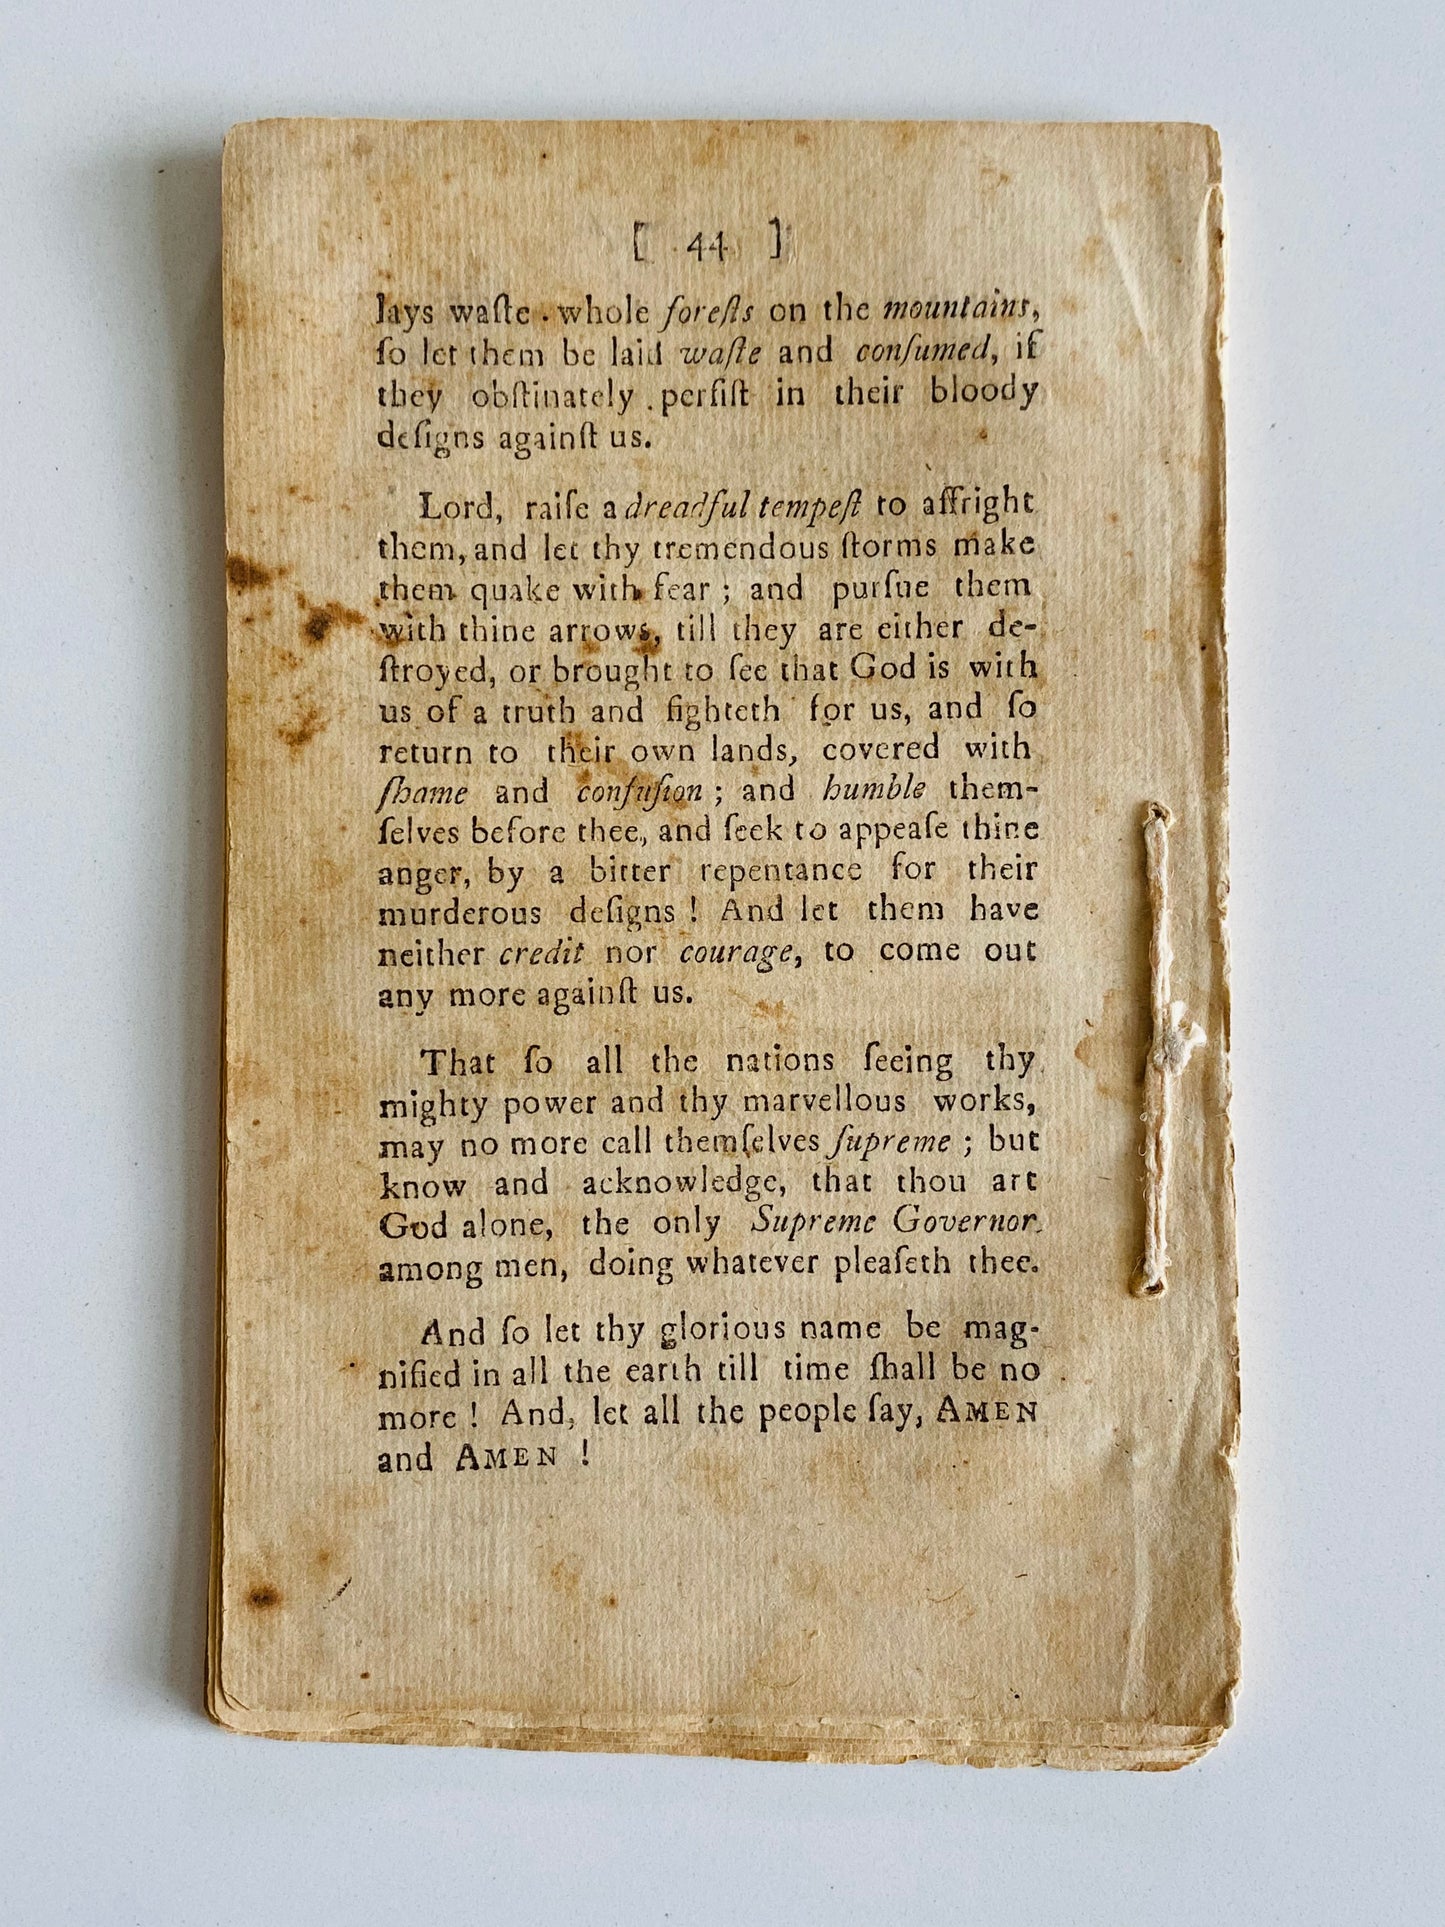 [ 44 ]
lays waſte whole foreſts on the mountains,
ſo let them be laid waſte and conſumed, if
they obſtinately perſiſt in their bloody
deſigns againſt us.
Lord, raiſe a dreadful tempeſt to affright
them, and let thy tremendous ſtorms make
them quake with fear ; and purſue them
with thine arrows, till they are either de-
ſtroyed, or brought to ſee that God is with
us of a truth and fighteth for us, and ſo
return to their own lands, covered with
ſhame and confuſion ; and humble them-
ſelves before thee, and ſeek to appeaſe thine
anger, by a bitter repentance for their
murderous deſigns ! And let them have
neither credit nor courage, to come out
any more againſt us.
That ſo all the nations ſeeing thy
mighty power and thy marvellous works,
may no more call themſelves ſupreme ; but
know and acknowledge, that thou art
God alone, the only Supreme Governor
among men, doing whatever pleaſeth thee.
And ſo let thy glorious name be mag-
nified in all the earth till time ſhall be no
more ! And, let all the people ſay, AMEN
and AMEN !